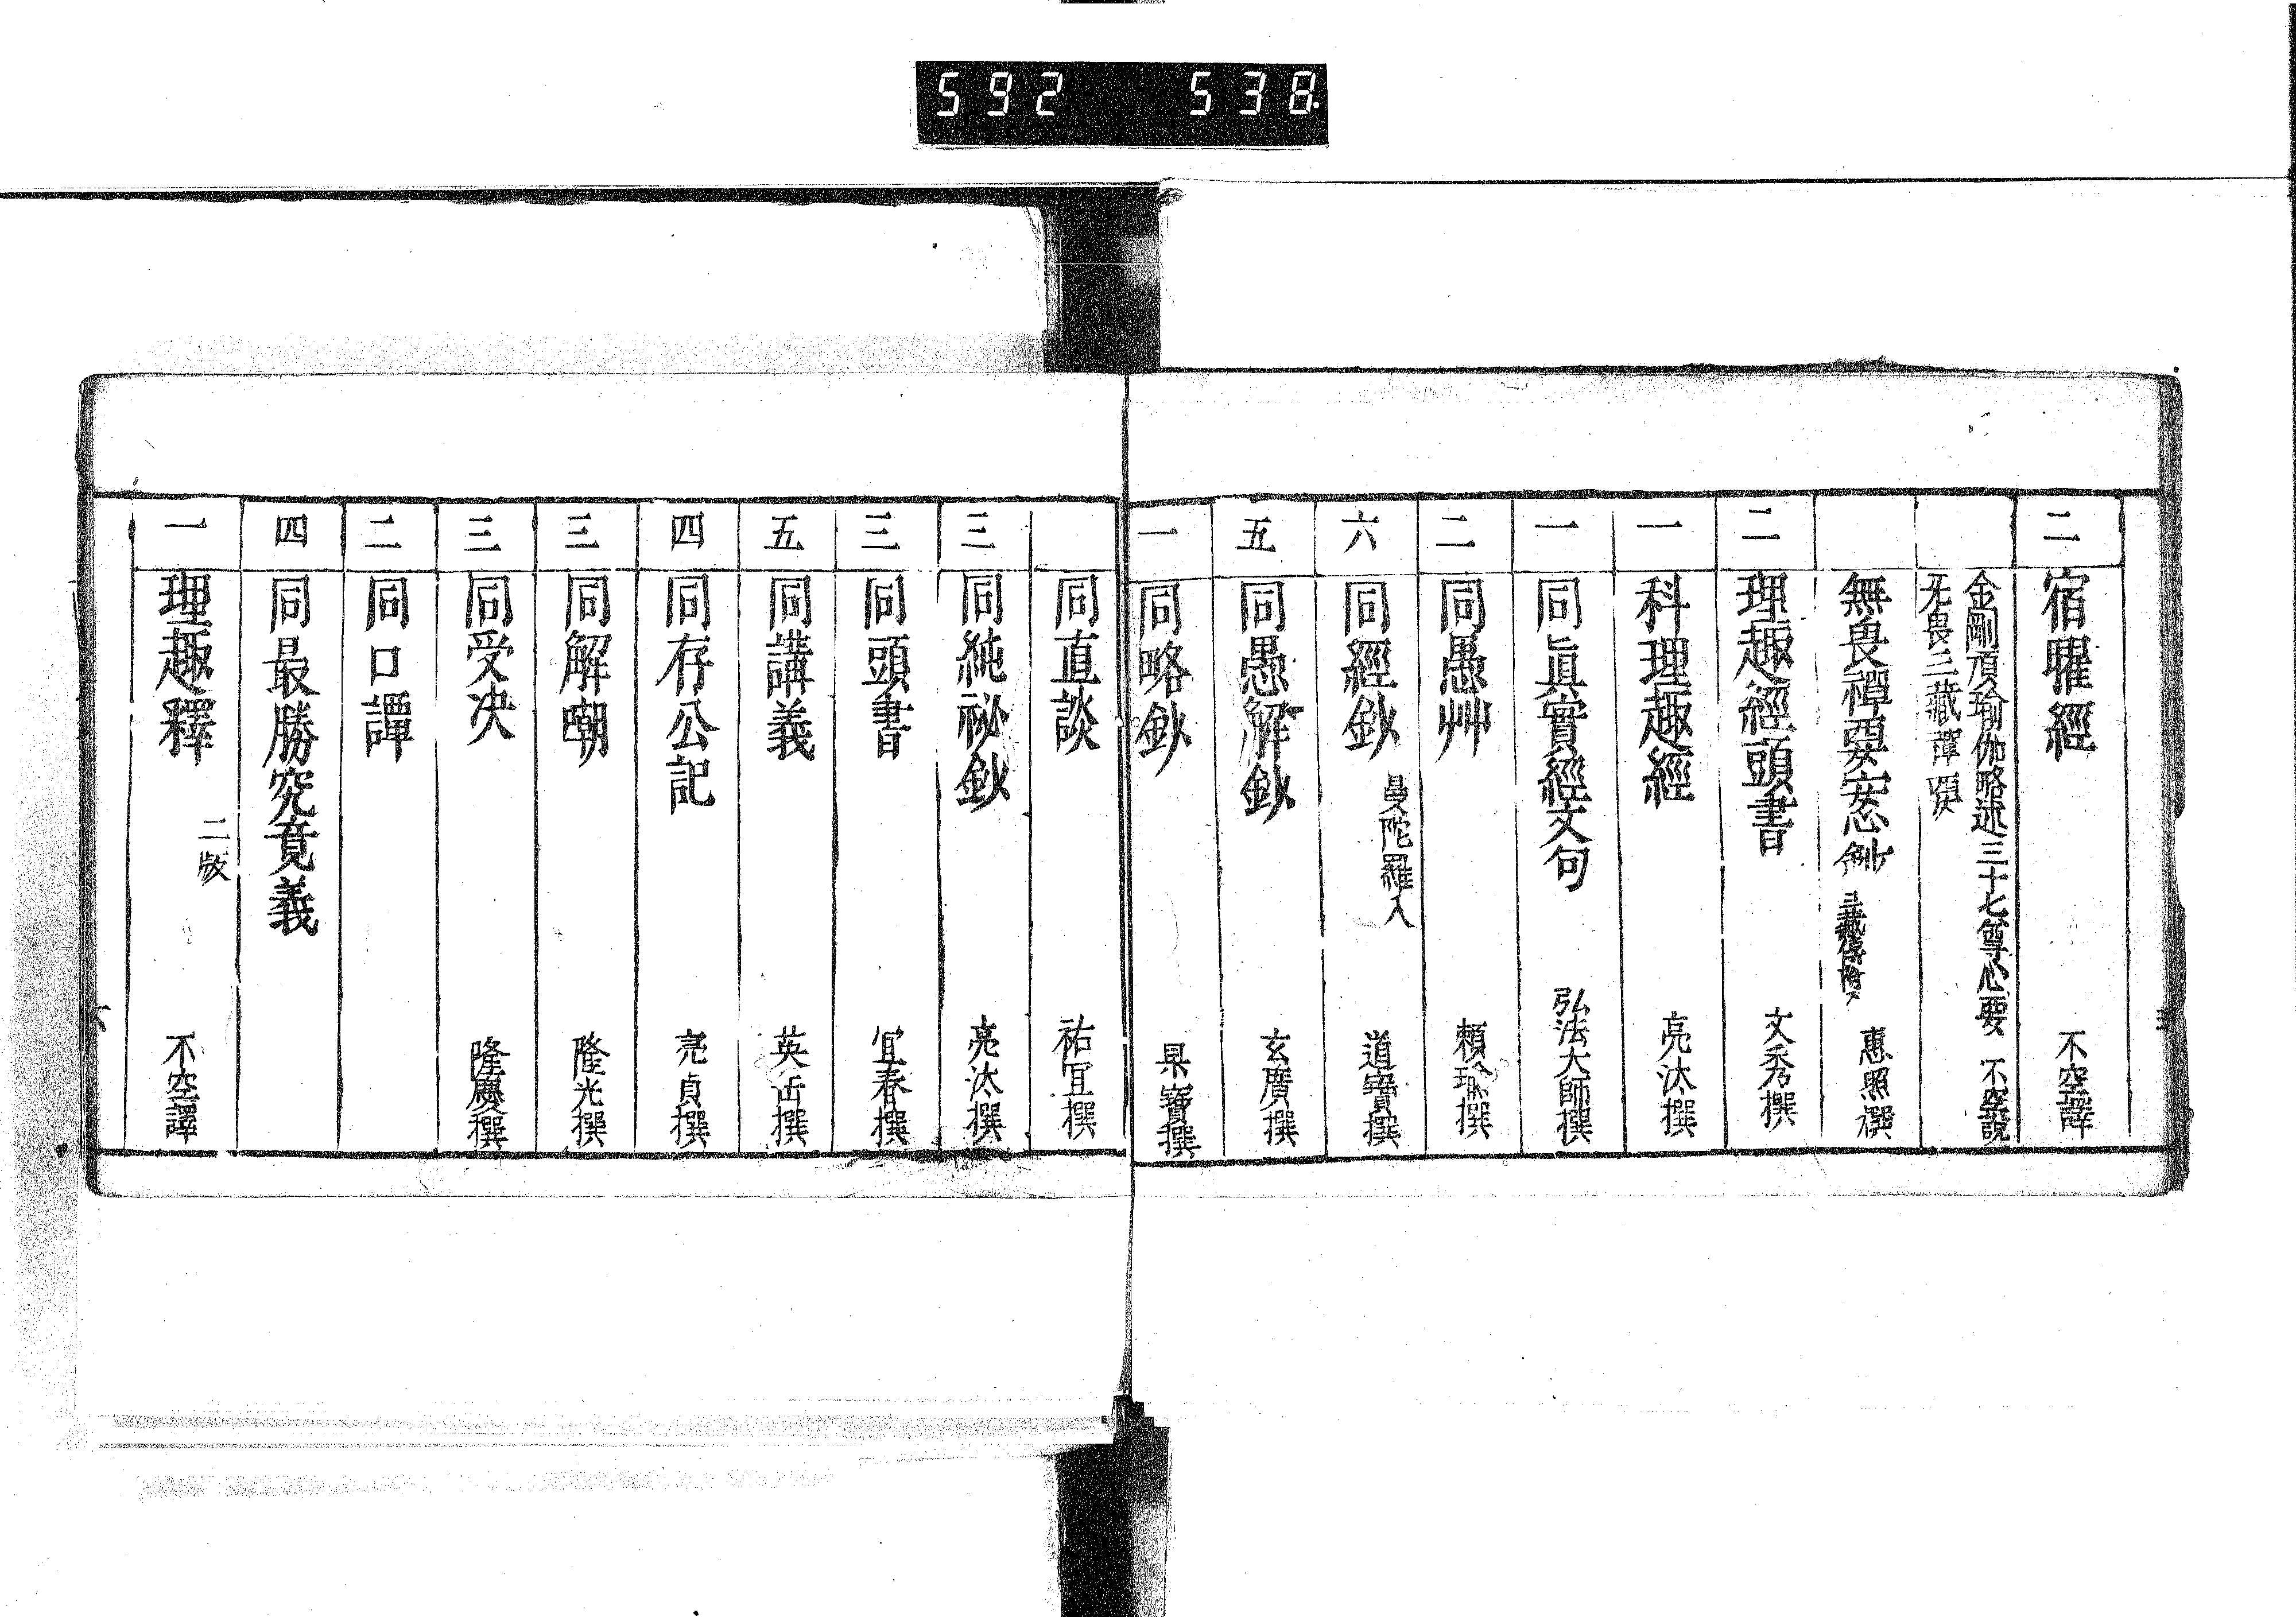 592 538.
二 宿曜經 不空譯
金剛頂瑜伽略述三十七尊心要 不空說
无畏三藏禪要
無畏禪要宓鈔 三藏傳附 惠照撰
二 理趣經頭書 文秀撰
一 科理趣經 亮汰撰
一 同眞實經文句 弘法大師撰
二 同愚艸 賴瑜撰
六 同經鈔 曼陀羅入 道寶撰
五 同愚解鈔 玄廣撰
一 同略鈔 杲寶撰
同直談 祐冝撰
三 同純祕鈔 亮汰撰
三 同頭書 冝春撰
五 同講義 英岳撰
四 同存公記 亮貞撰
三 同解嘲 隆光撰
三 同受决 隆慶撰
二 同口譚
四 同最勝究竟義
一 理趣釋 二版 不空譯
六